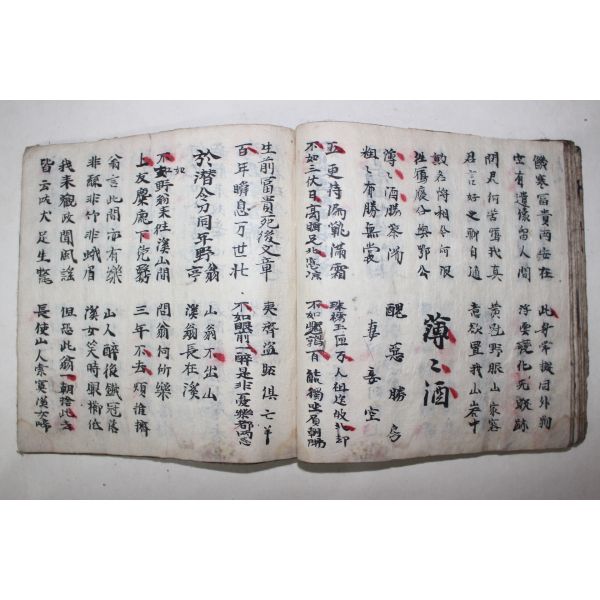 饑寒富貴兩安在
空有遺像留人間
此身常擬同外物
浮雲變化无蹤跡
問君何苦寫我真
君言好之聊自適
黃冠野服山家容
意欲置我山岩中
勳名將相今何限
往寫褒公與鄂公
薄〻酒
薄〻酒勝茶湯
粗〻布勝無裳
醜惡勝房
妻妾空
五更待漏靴滿霜
不如三伏日高睡足北窓凉
珠襦玉匣万人祖送歸北邙
不如懸鶉百結獨坐負朝陽
生前富貴死後文章
百年瞬息万世壯
夷齊盜跖俱亡羊
不如眼前一醉是非憂樂都兩忘
於潛令刁同年野翁亭
山翁不出山
溪翁長在溪
不如野翁來往溪山間
上友麋鹿下鳧鷖
問翁何所樂
三年不去煩推擠
翁言此間亦有樂
非絲非竹非蛾眉
山人醉後鐵冠落
溪女笑時銀櫛低
我來觀政問風謠
皆云吠犬足生氂
但恐此翁一朝捨此去
長使山人索寞溪女啼